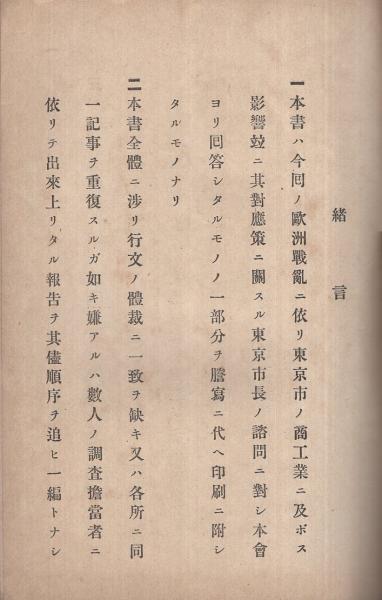 緒言
一本書ハ今回ノ歐洲戰亂ニ依リ東京市ノ商工業ニ及ボス
影響竝ニ其對應策ニ關スル東京市長ノ諮問ニ對シ本會
ヨリ回答シタルモノノ一部分ヲ謄寫ニ代ヘ印刷ニ附シ
タルモノナリ
二本書全體ニ涉リ行文ノ體裁ニ一致ヲ缺キ又ハ各所ニ同
一記事ヲ重復スルガ如キ嫌アルハ數人ノ調査擔當者ニ
依リテ出來上リタル報告ヲ其儘順序ヲ追ヒ一編トナシ